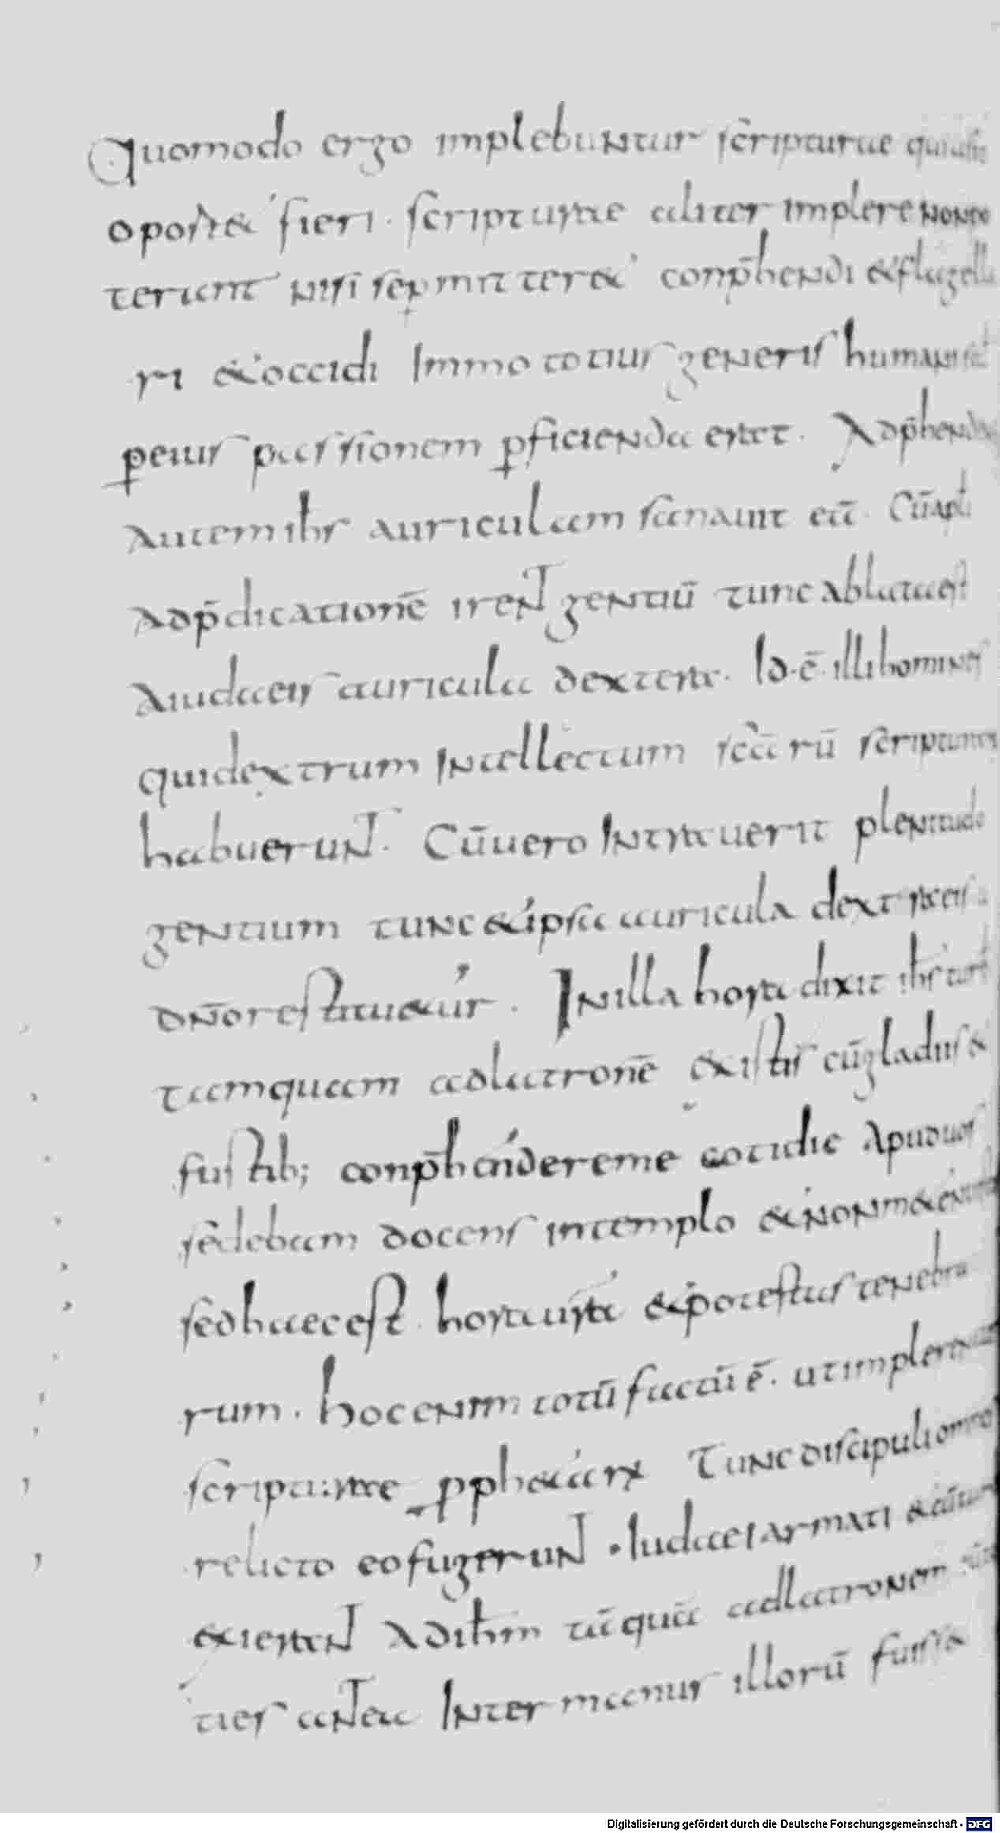 Quomodo ergo implebuntur scripturae quia sic
oportet fieri · scripturae aliter implere non po
terunt nisi se permitteret conp̄hendi et flagella
ri et occidi Immo totius generis humani sal
ꝑeius passionem ꝑficienda erat · Adp̄hendens
autem ihs auriculam sanauit eā · Cū apli
adp̄dicationē irent gentiū tunc ablata est
a iudaeis auricula dextera · Id · ē · illi homines
qui dextrum intellectum scārū scripturarū
habuerunt · Cū uero intrauerit plenitudo
gentium tunc et ipsa auricula dextra eis a
dn̄o restituetur · In illa hora dixit ihs turbis
tamquam ad latronē existis cū gladiis et
fustib; conp̄hendere me cotidie apud uos
sedebam docens in templo et non me tenuistis
sed haec est hora uestra et potestas tenebra
rum · hoc enim totū factū ē · ut implerentur
scripturae ꝓphetarū Tunc discipuli omnes
relicto eo fugerunt · Iudaei armati et cū tur
exierant ad ihm tāquā ad latronem
ties antea inter manus illorū fuisset